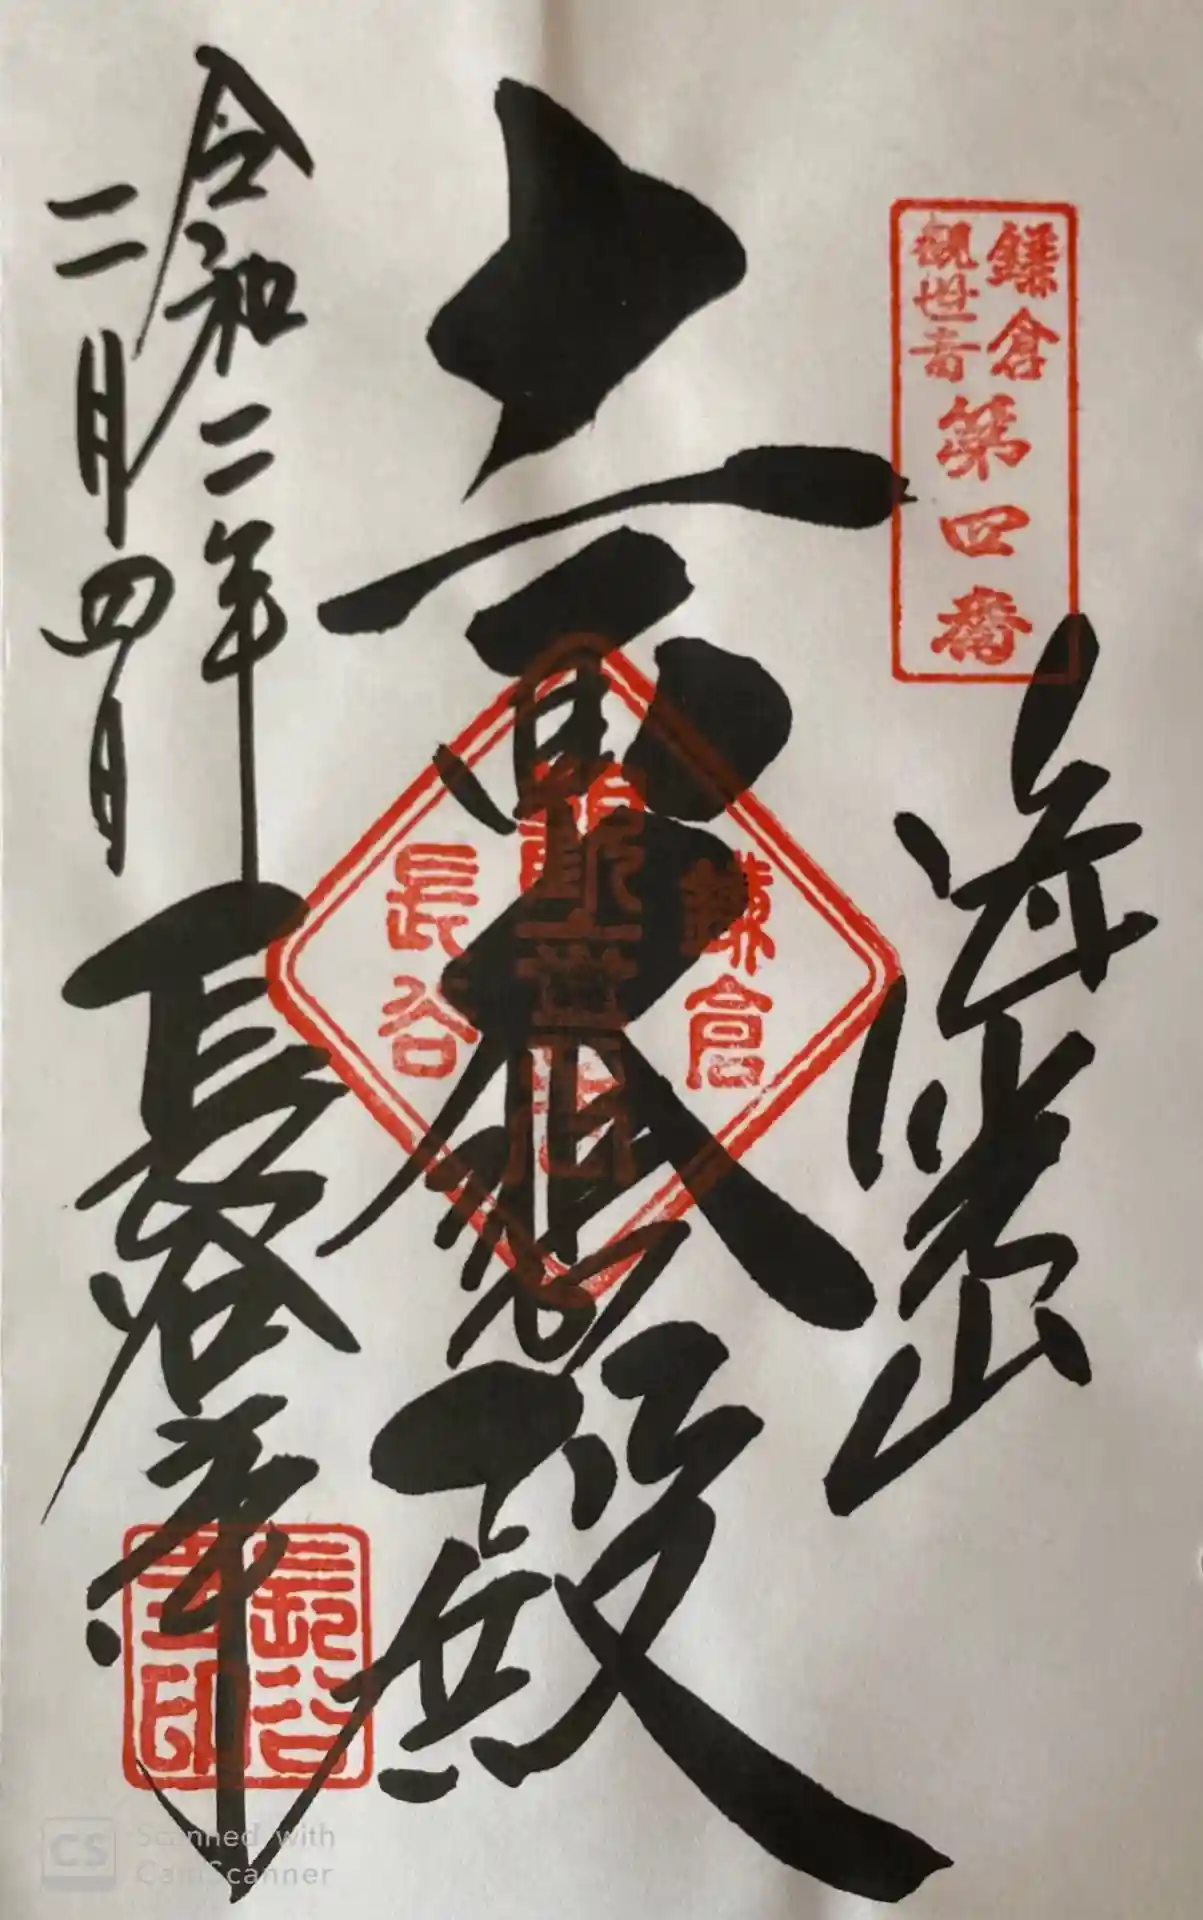 鎌倉
観世音
第四番
海光山
十一面大悲殿
鎌倉
観世音
長谷
令和二年
二月四日
長谷寺
長谷
寺印
CS
Scanned with
CamScanner